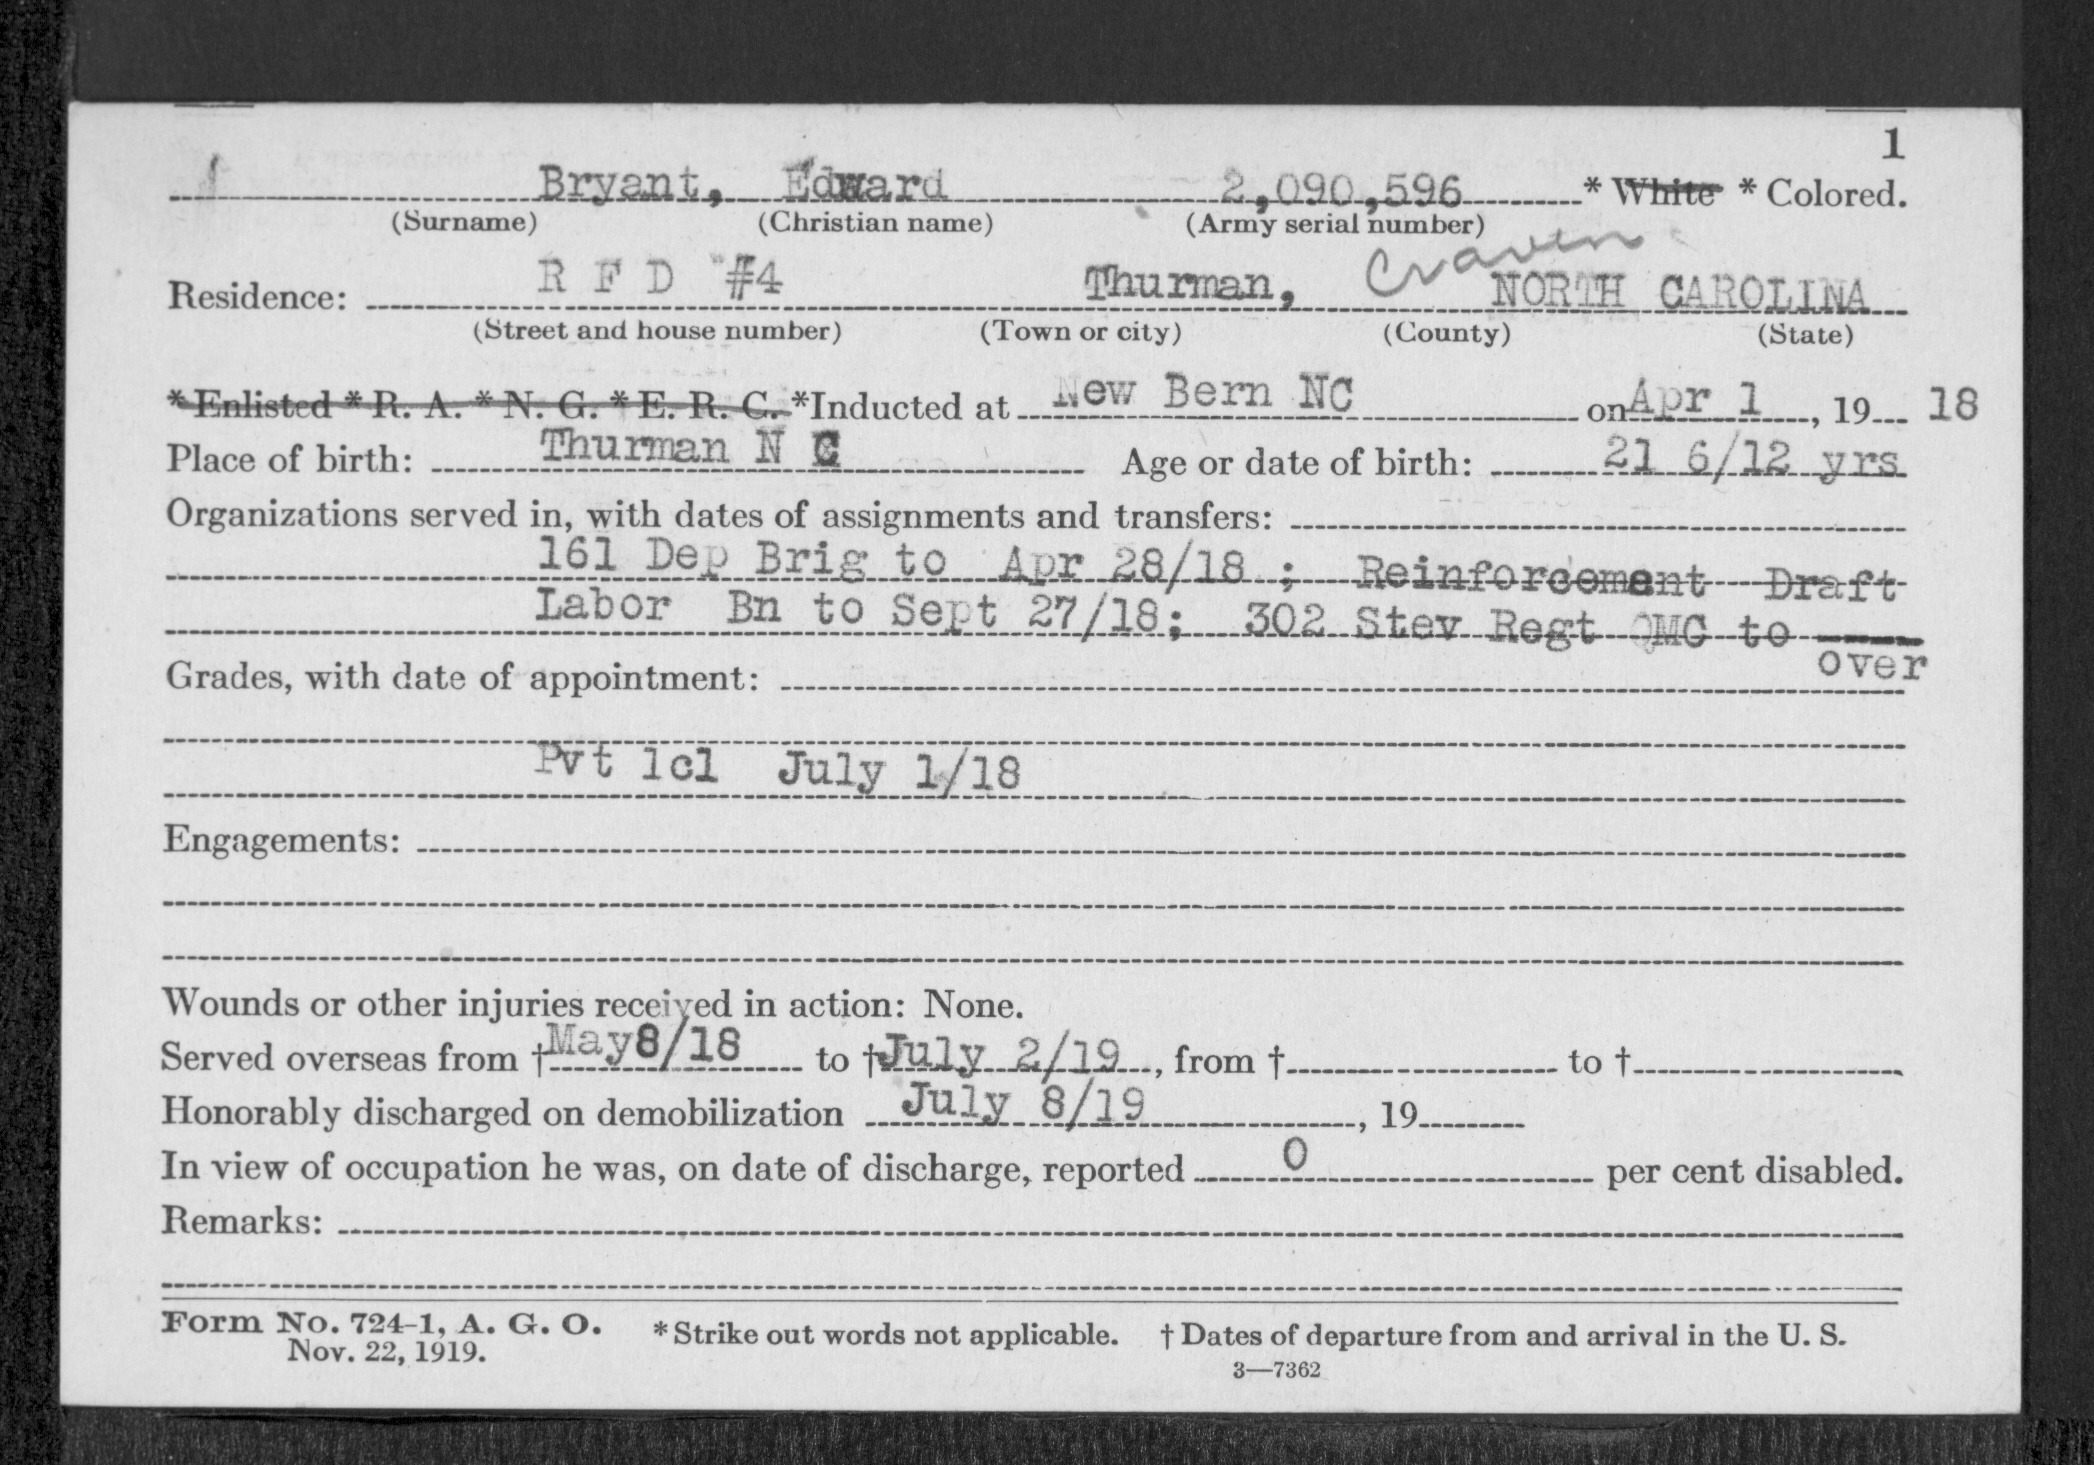 1
Bryant, Edward 2,090,596 * White * Colored.
(Surname) (Christian name) (Army serial number)
Residence: R F D #4 Thurman, Craven NORTH CAROLINA
(Street and house number) (Town or city) (County) (State)
* Enlisted * R. A. * N. G. * E. R. C. *Inducted at New Bern NC on Apr 1, 19 18
Place of birth: Thurman N C Age or date of birth: 21 6/12 yrs
Organizations served in, with dates of assignments and transfers:
161 Dep Brig to Apr 28/18 ; Reinforcement Draft
Labor Bn to Sept 27/18; 302 Stev Regt QMC to
over
Grades, with date of appointment:
Pvt 1cl July 1/18
Engagements:
Wounds or other injuries received in action: None.
Served overseas from † May8/18 to † July 2/19, from † to †
Honorably discharged on demobilization July 8/19, 19
In view of occupation he was, on date of discharge, reported 0 per cent disabled.
Remarks:
Form No. 724-1, A. G. O. * Strike out words not applicable. † Dates of departure from and arrival in the U. S.
Nov. 22, 1919.
3—7362